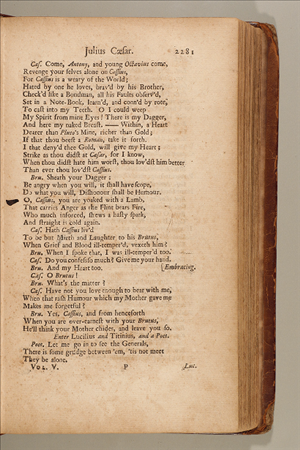 Julius Cæsar. 2281
Caſ. Come, Antony, and young Octavius come,
Revenge your ſelves alone on Caſſius,
For Caſſius is a weary of the World;
Hated by one he loves, brav'd by his Brother,
Check'd like a Bondman, all his Faults obſerv'd,
Set in a Note-Book, learn'd, and conn'd by rote,
To caſt into my Teeth. O I could weep
My Spirit from mine Eyes! There is my Dagger,
And here my naked Breaſt. —— Within, a Heart
Dearer than Pluto's Mine, richer than Gold;
If that thou beeſt a Roman, take it forth.
I that deny'd thee Gold, will give my Heart;
Strike as thou didſt at Cæſar, for I know,
When thou didſt hate him worſt, thou lov'dſt him better
Than ever thou lov'dſt Caſſius.
Bru. Sheath your Dagger;
Be angry when you will, it ſhall have ſcope,
Do what you will, Diſhonour ſhall be Humour.
O, Caſſius, you are yoaked with a Lamb,
That carries Anger as the Flint bears Fire,
Who much inforced, ſhews a haſty ſpark,
And ſtraight is cold again.
Caſ. Hath Caſſius liv'd
To be but Mirth and Laughter to his Brutus,
When Grief and Blood ill-temper'd, vexeth him?
Bru. When I ſpoke that, I was ill-temper'd too.
Caſ. Do you confeſs ſo much? Give me your hand.
Bru. And my Heart too. [Embracing.
Caſ. O Brutus!
Bru. What's the matter?
Caſ. Have not you love enough to bear with me,
When that raſh Humour which my Mother gave me
Makes me forgetful?
Bru. Yes, Caſſius, and from henceforth
When you are over-earneſt with your Brutus,
He'll think your Mother chides, and leave you ſo.
Enter Lucilius and Titinius, and a Poet.
Poet. Let me go in to ſee the Generals,
There is ſome grudge between 'em, 'tis not meet
They be alone.
Vol. V. P Luc.